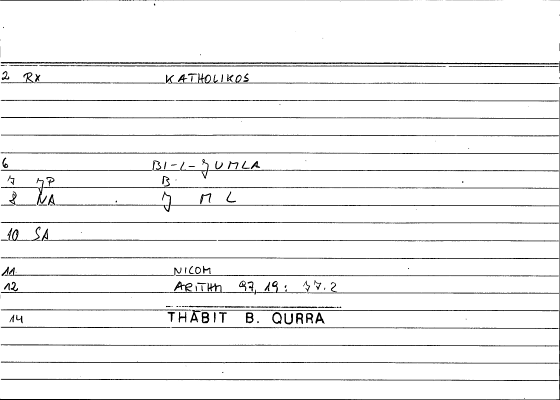 2 RX KATHOLIKOS
6 BI-L-JUMLA
7 JP B
8 NA J M L
10 SA
11 NICOM
12 ARITHM 97,19: 77.2
14 THĀBIT B. QURRA